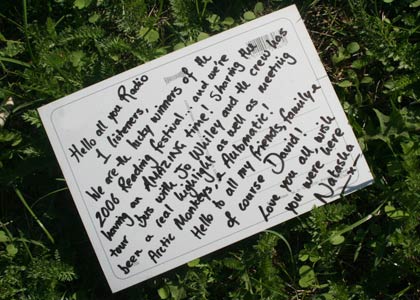 Hello all you Radio
1 listeners,
We are the lucky winners of the
2006 Reading festival.... and we're
having an AMAZING time! Sharing the
tour bus with Jo Whiley and the crew has
been a real highlight as well as meeting
Arctic Monkeys, & Automatic.
Hello to all my friends, family &
of course David!
Love you all, wish
you were here
Natasha